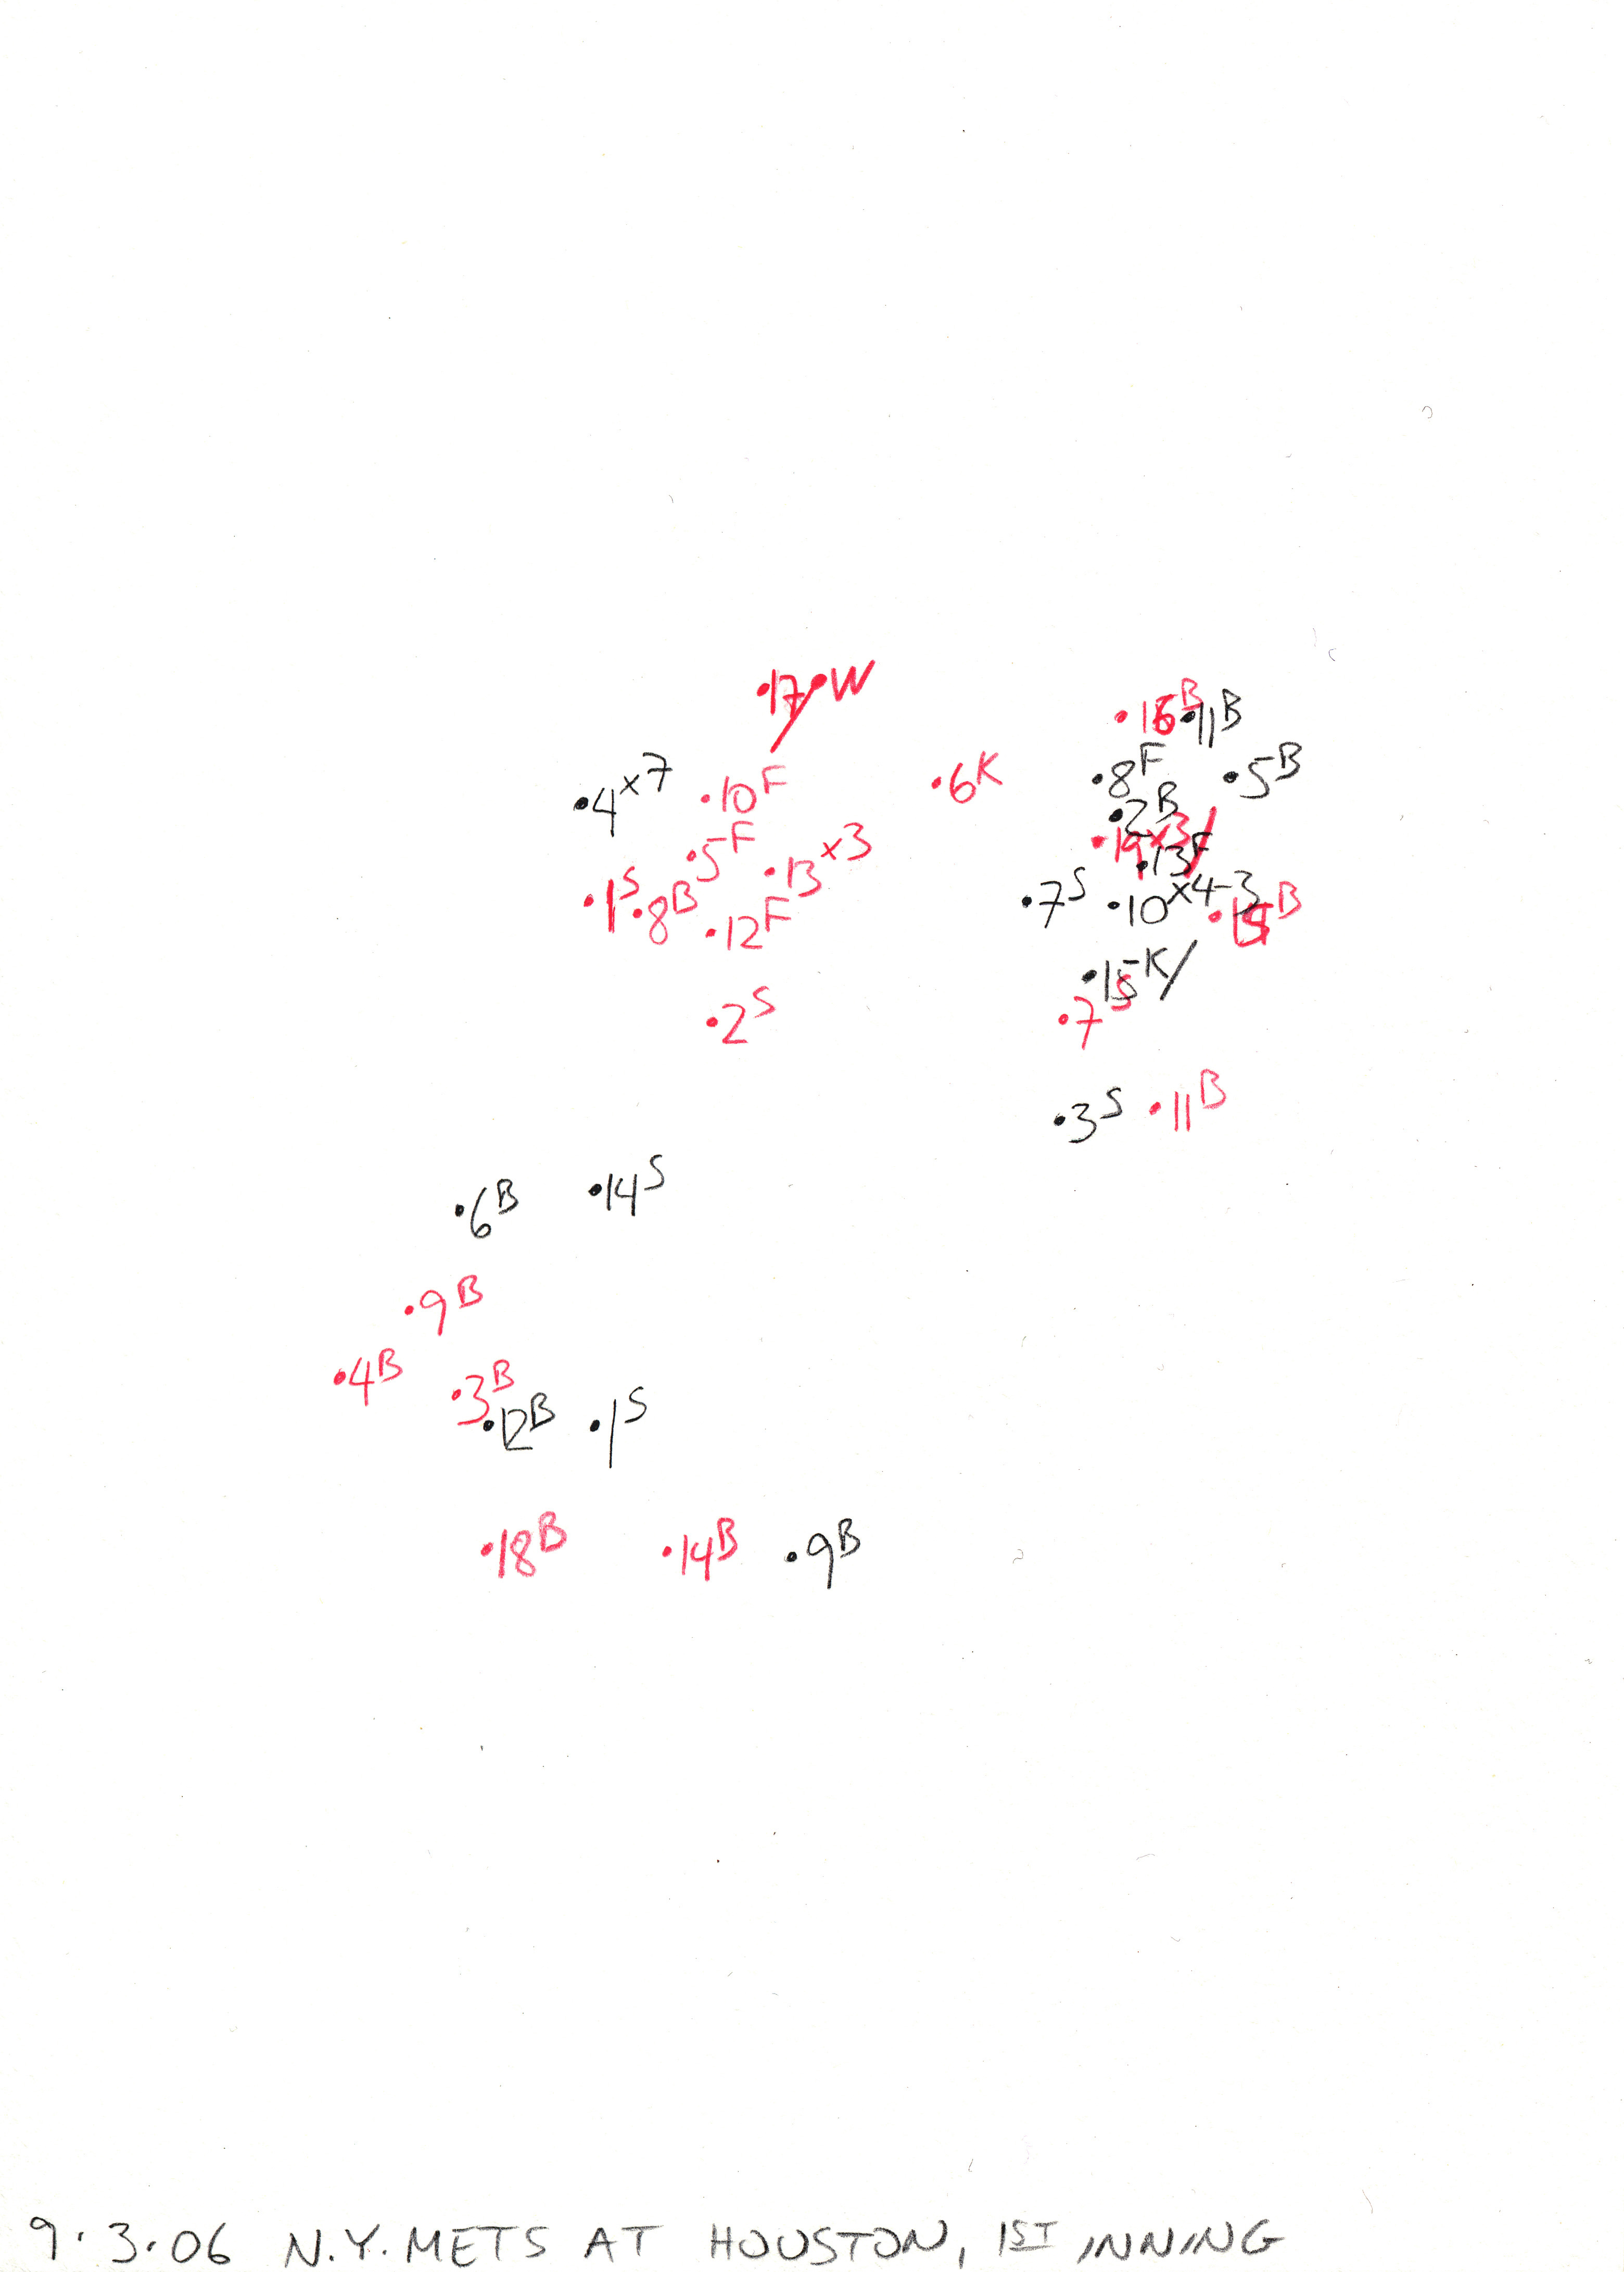 17 W
16B 11B
4x7 10F 6K 8F 5B
2B
5F 13x3 19x3/ 13F
1S 8B 12F 7S 10x4-3 B
15K/
2S 7S
3S 11B
6B 14S
9B
4B 3B
12B 1S
18B 14B 9B
9.3.06 N.Y. METS AT HOUSTON, 1ST INNING